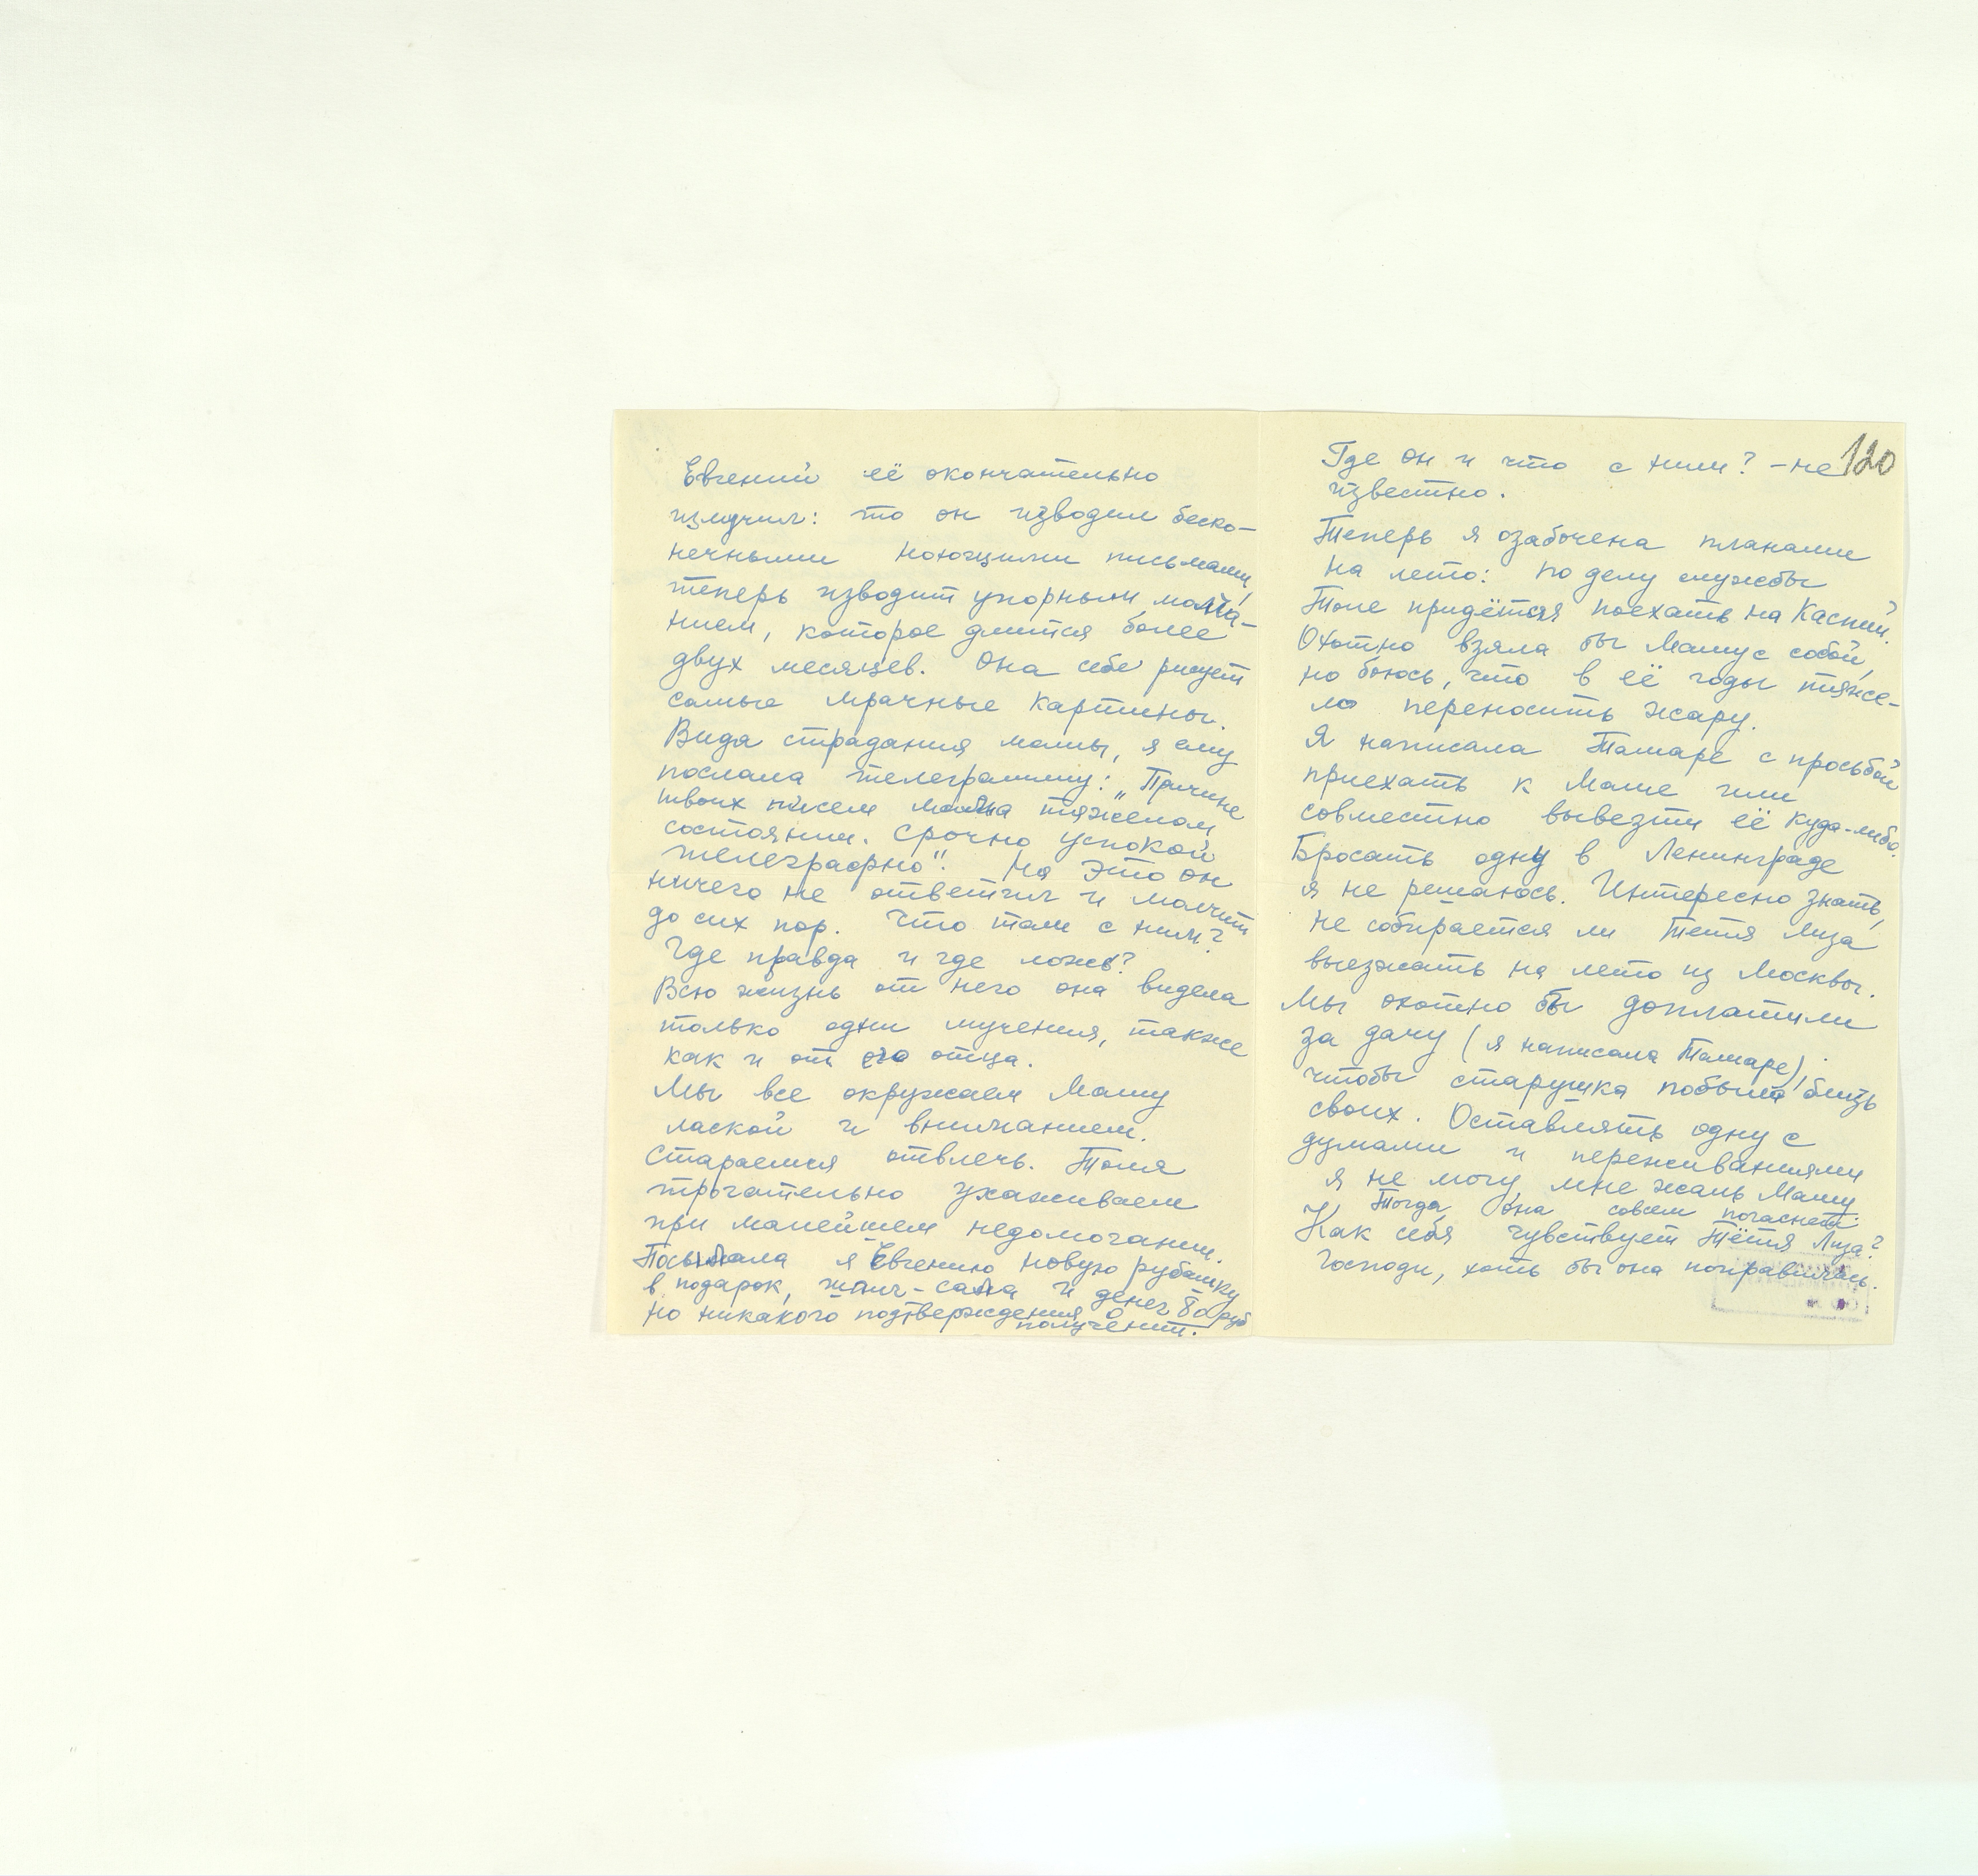 Евгений её окончательно
измучил: то он изводил беско-
нечными ноющими письмами,
теперь изводит упорным молча-
нием, которое длится более
двух месяцев. Она себе рисует
самые мрачные картины.
Видя страдания мамы, я ему
послала телеграмму: „Причине
твоих писем мама тяжелом
состоянии. Срочно успокой
телеграфно". На это он
ничего не ответил и молчит
до сих пор. Что там с ним?
Где правда и где ложь?
Всю жизнь от него она видела
только одни мучения, также
как и от его отца.
Мы все окружаем Маму
лаской и вниманием.
Стараемся отвлечь. Толя
трогательно ухаживает
при малейшем недомогании.
Посылала я Евгению новую рубашку
в подарок, шпиг-сала и денег 80 руб
но никакого подтверждения о
получении.
Где он и что с ним? – не
120
известно.
Теперь я озабочена планами
на лето: по делу службы
Толе придётся поехать на Каспий.
Охотно взяла бы Маму с собой,
но боюсь, что в её годы тяже-
ло переносить жару.
Я написала Тамаре с просьбой
приехать к Маме или
совместно вывезти её куда-либо.
Бросать одну в Ленинграде
я не решаюсь. Интересно знать,
не собирается ли Тетя Лиза
выезжать на лето из Москвы.
Мы охотно бы доплатили
за дачу (я написала Тамаре),
чтобы старушка побыла близь
своих. Оставлять одну с
думами и переживаниями
я не могу, мне жаль Маму
Тогда она совсем погаснет.
Как себя чувствует Тётя Лиза?
Господи, хоть бы она поправилась.